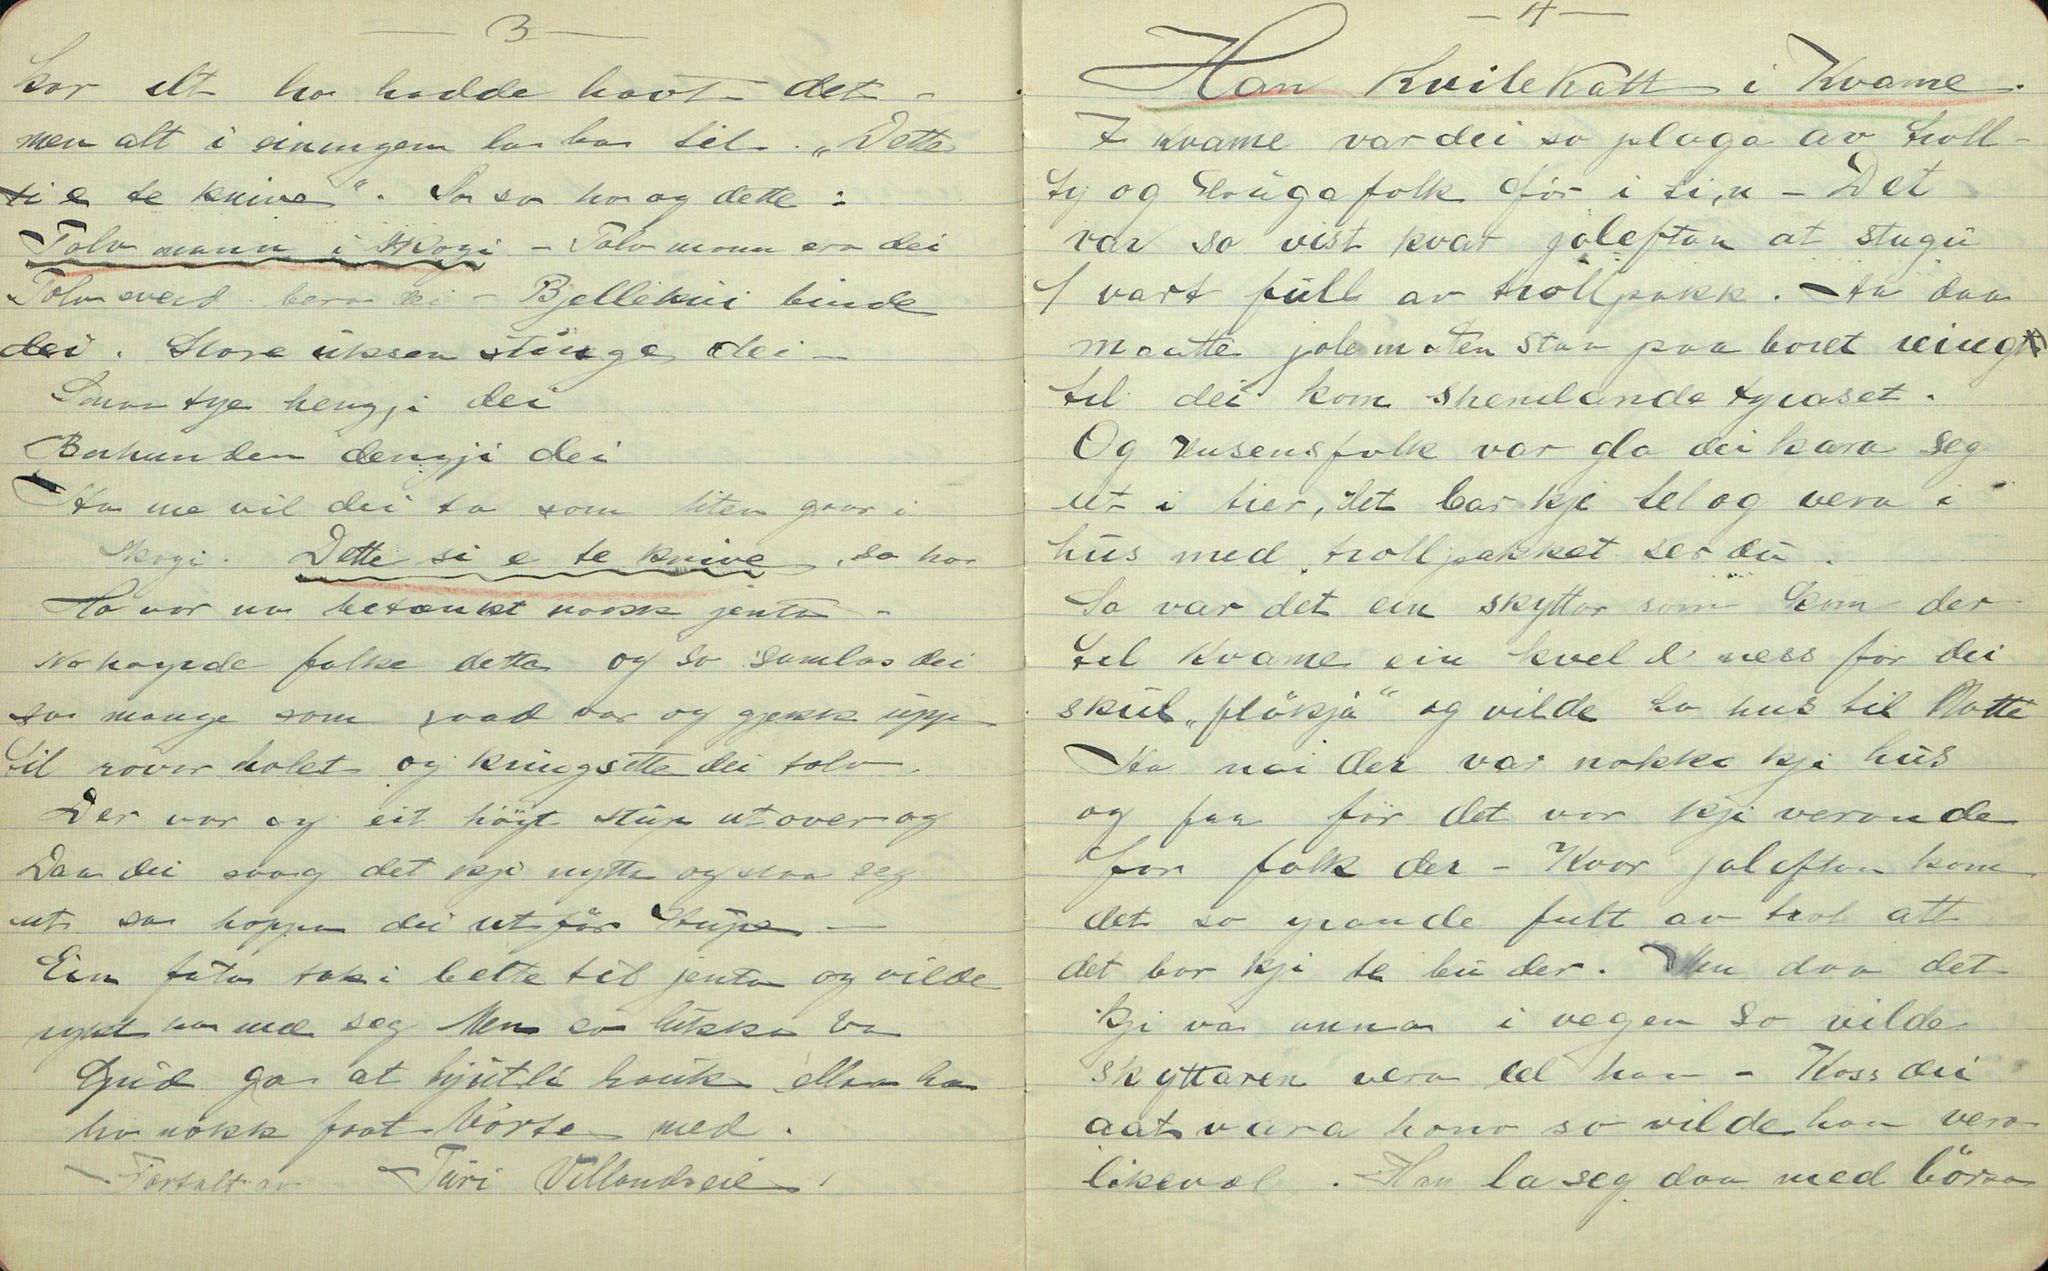 — 3 —
kor alt ho hadde havt det -
men alt i einingen la ho til. „Dette
si e te knive“. So sa ho og dette :
Tolv mann i skogi - Tolv mann era dei
Tolv sverd bera dei - Bjelleküi binde
dei. Store üksen stünge dei -
Smaa tye hengji dei
Buhunden dengji dei
Aa me vil dei ta som liten gaar i
skogi. Dette si e te knive, sa ho
Ho var no betænkt norsk jenta -
No høyrde folke dette og so samlas dei
so mange som raad var og gjekk üpp
til røvarholet og kringsette dei tolv.
Der var og eit högt stüp utover og
Daa dei saag det kji nytta og slaa seg
ut so hoppa dei utför stüpe —
Ein füta tok i belte til jenta og vilde
rykt ho med seg Men so lükka va
Güd ga at hjütli rauk ellar ha
ho nokk faat börte med.
Fortalt av Türi Villandseie
— 4 —
Han Kvilekatt i Kvame.
I Kvame var dei so plaga av troll-
ty og Haugafolk för i ti,n - Det
var so vist kvar joleftan at stugü
vart full av trollpakk. Aa daa
maatte jolematen staa paa boret
til dei kom skenslande tyraset.
Og Husensfolk var gla dei kara seg
ut i tier, det bar kji tel og vera i
hüs med trollpakket ser dü.
So var det ein skyttar som kom der
tel Kvame ein kveld ness för dei
skül „flökja“ og vilde ha hus til Natte
Aa nei der var nokke kji hüs
og faa för det var kji verande
for folk der - Kvor joleftan kom
det so grande fult av trol att
det bar kji te bu der. Men daa det
kji va anna i vegen so vilde
skyttaren vera tel han - Koss dei
aatvara hono so vilde han vera
likevæl. Han la seg daa med börsa